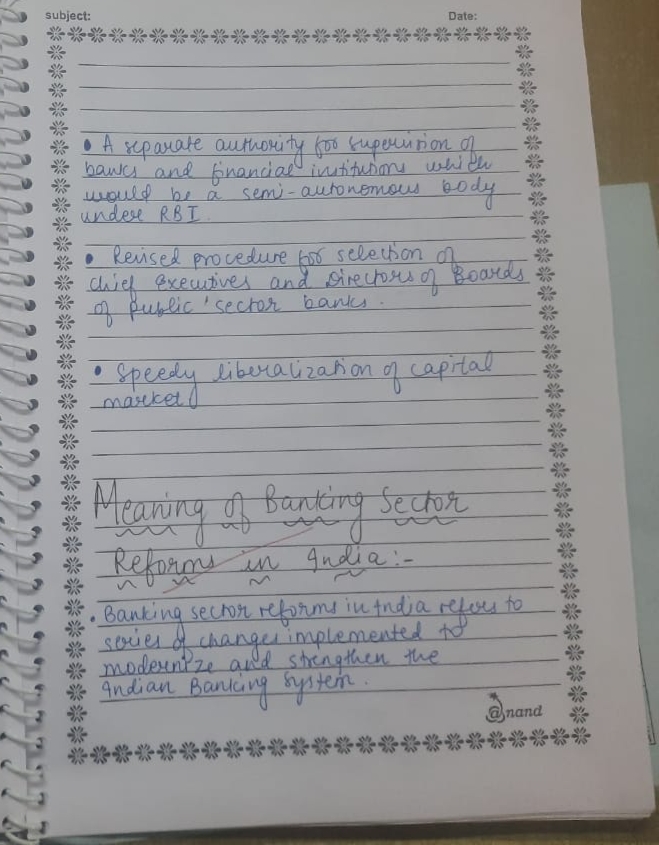 subject:
Date:
• A separate authority for supervision of
banks and financial institutions which
would be a semi-autonomous body
under RBI.
• Revised procedure for selection of
chief executives and Directors of Boards
of public sector banks.
• Speedy liberalization of capital
market
Meaning of Banking Sector
Reforms in India:-
• Banking sector reforms in India refers to
series of changes implemented to
modernize and strengthen the
Indian Banking System.
@nand